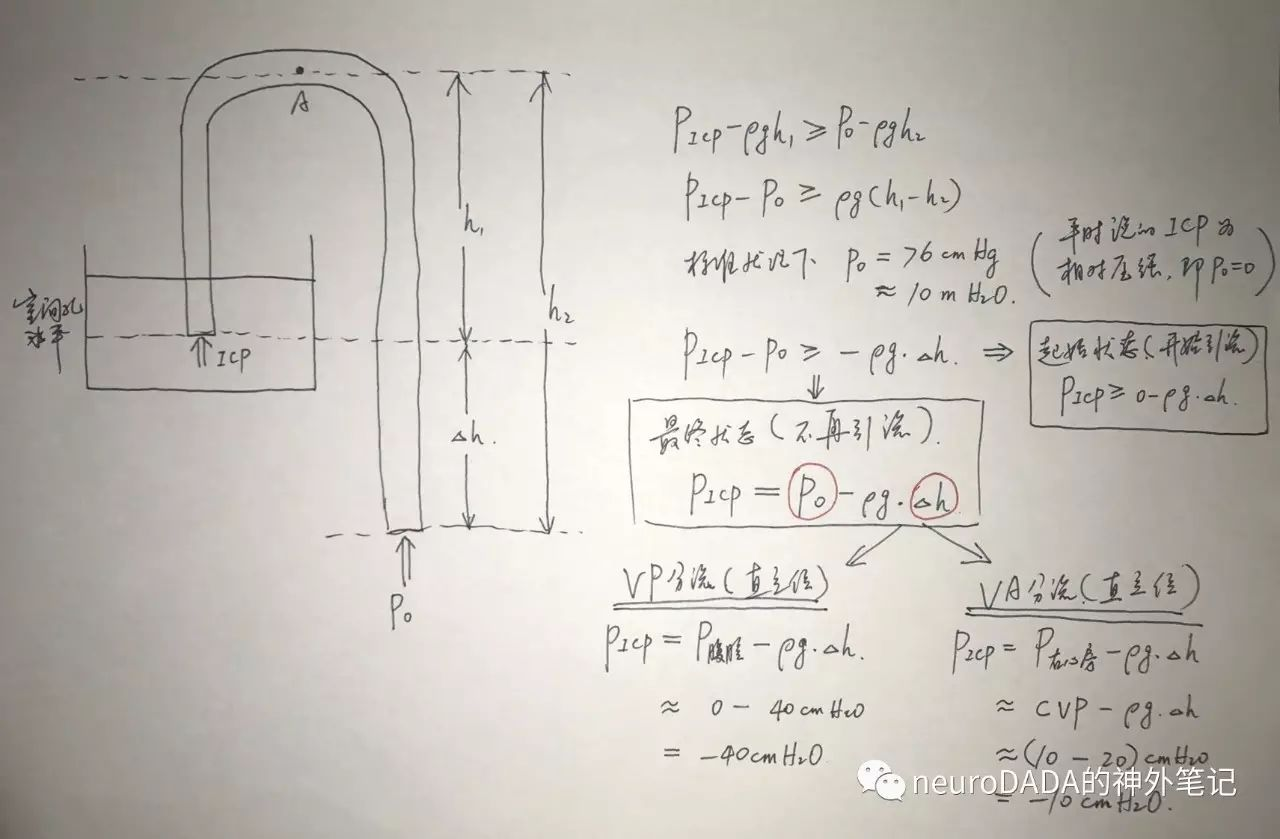 A
h₁
h₂
室间孔
水平
ICP
Δh.
P₀
P_ICP-ρgh₁ ≥ P₀-ρgh₂
P_ICP-P₀ ≥ ρg(h₁-h₂)
标准状况下、P₀ = 76 cmHg
≈ 10 m H₂O.
(平时说的 ICP 为
相对压强, 即 P₀=0)
P_ICP-P₀ ≥ -ρg·Δh. ⇒
起始状态(开始引流)
P_ICP ≥ 0-ρg·Δh.
最终状态(不再引流).
P_ICP = P₀-ρg·Δh.
VP分流(直立位)
P_ICP = P腹腔-ρg·Δh.
≈ 0-40cmH₂O
= -40cmH₂O.
VA分流(直立位)
P_ICP = P右心房-ρg·Δh
≈ CVP-ρg·Δh
≈ (10-20)cmH₂O
= -10cmH₂O.
neuroDADA的神外笔记